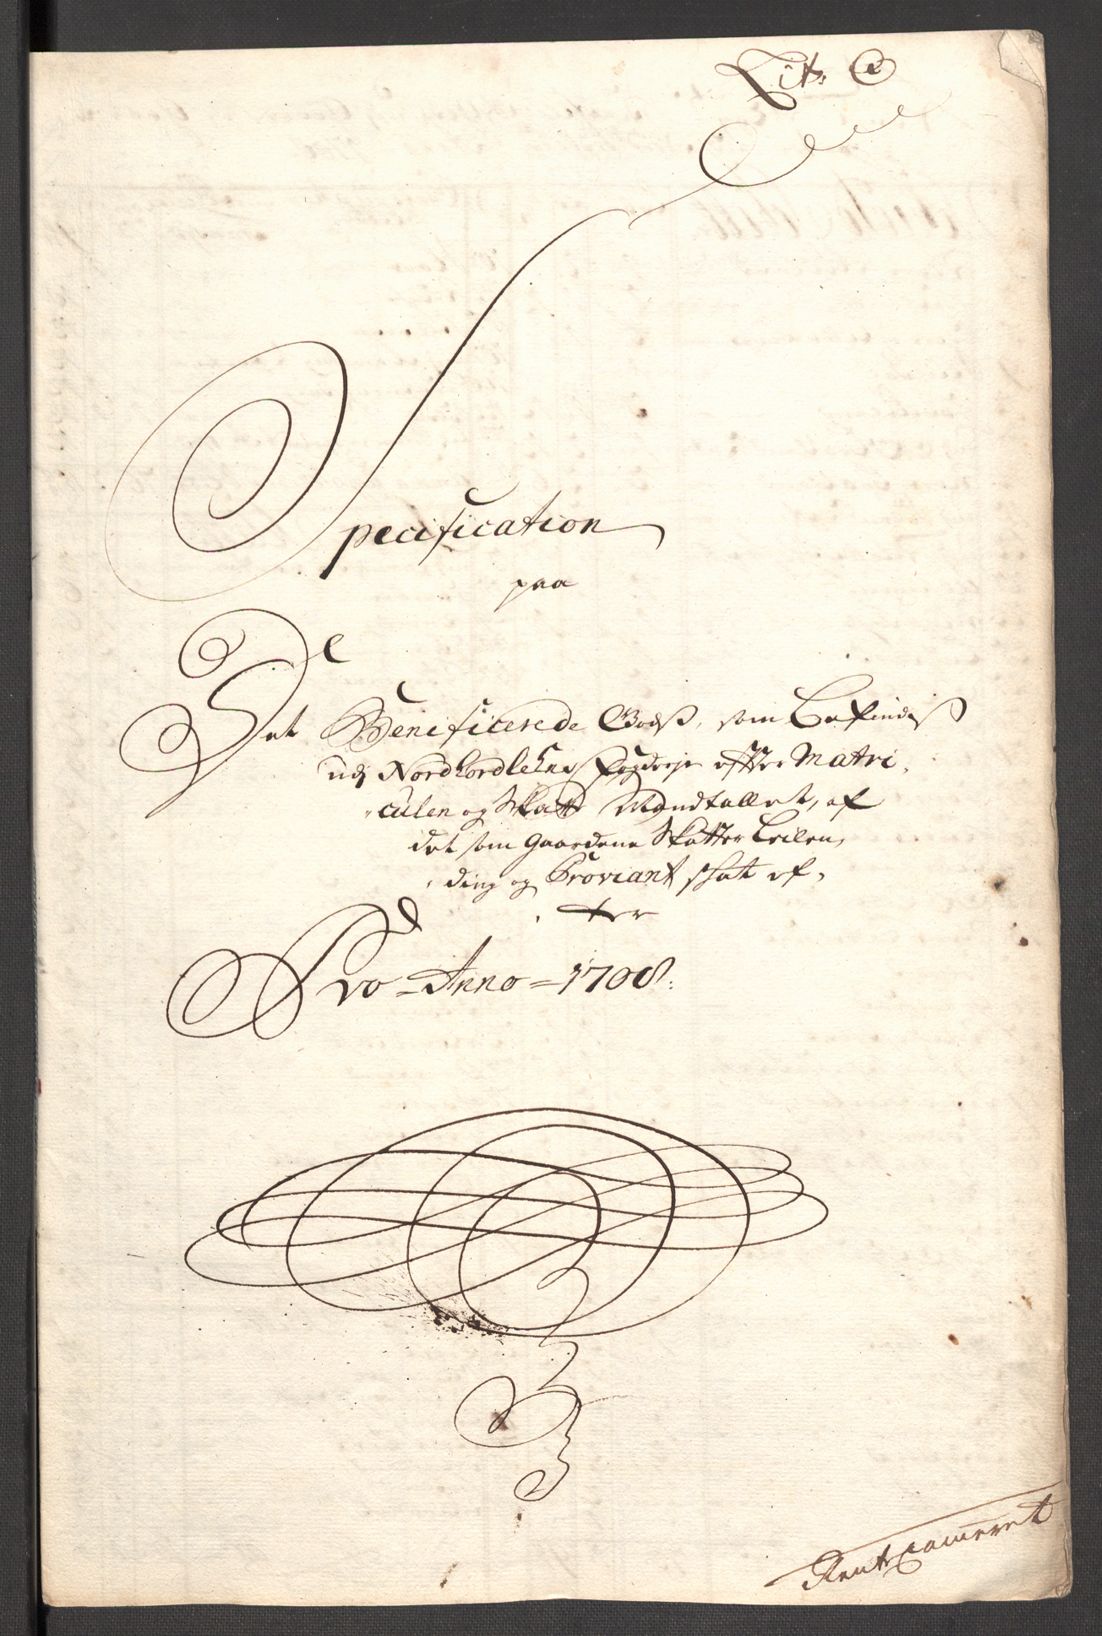 Lit: C
Specification
paa
Det Beneficerede Godß, som Befindiß
udj Nordhordlehns fogderje effter Matri-
culen og Skatte Mandtallet, af
det som Gaardene Skatter Leilen-
ding og Proviant skat ef-
ter
Pro Anno 1708:
Rentcameret